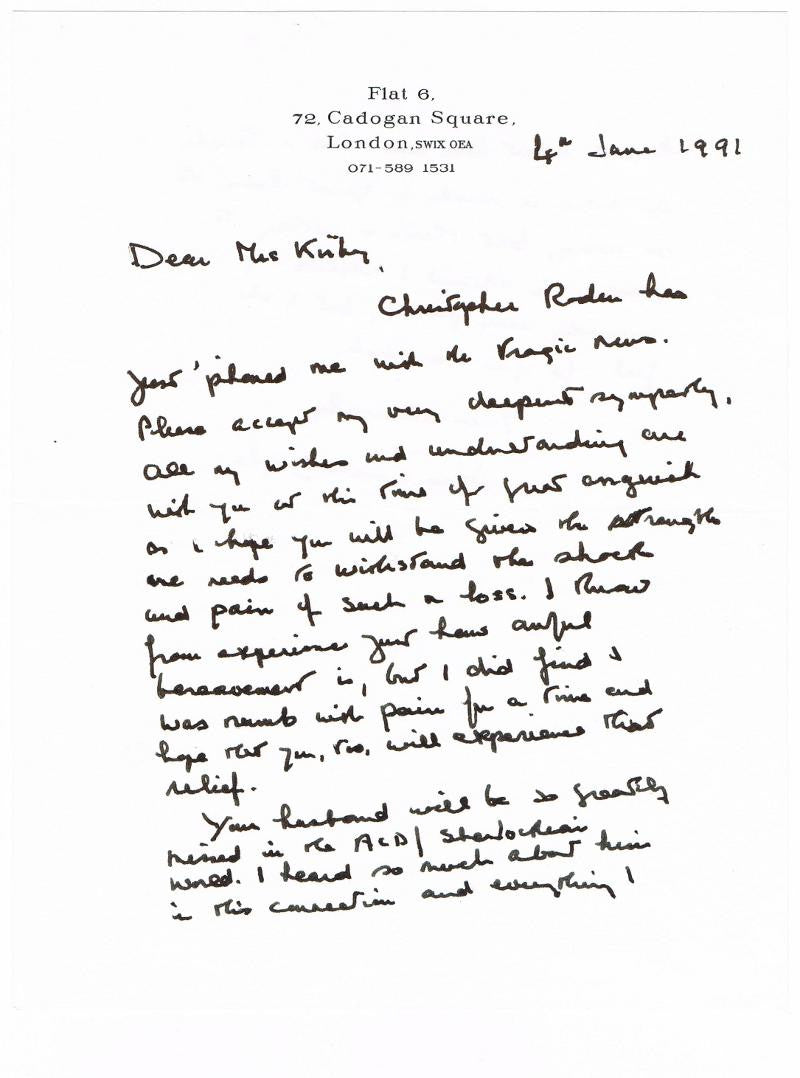 Flat 6,
72, Cadogan Square,
London, SW1X 0EA
071-589 1531
4th June 1991
Dear Mrs Kirby,
Christopher Roden has
just 'phoned me with the tragic news.
Please accept my very deepest sympathy,
all my wishes and understanding are
with you at this time of great anguish
as I hope you will be given the strength
one needs to withstand the shock
and pain of such a loss. I know
from experience just how awful
bereavement is, but I did find I
was numb with pain for a time and
hope that you, too, will experience that
relief.
Your husband will be so greatly
missed in the ACD/Sherlockian
world. I heard so much about him
in this connection and everything I